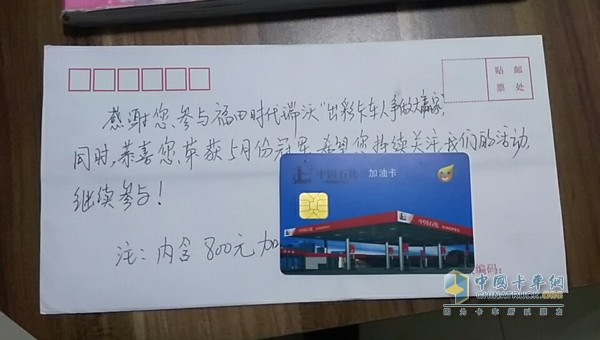 贴 邮
票 处
感谢您参与福田时代瑞沃“出彩卡车人事故大赢家”,
同时,恭喜您荣获5月份冠军,希望您持续关注我们的活动,
继续参与!
中国石化 加油卡
中国石化
注:内含800元加
编码:
中国卡车网
CHINATRUCK.ORG
因为卡车 所以朋友